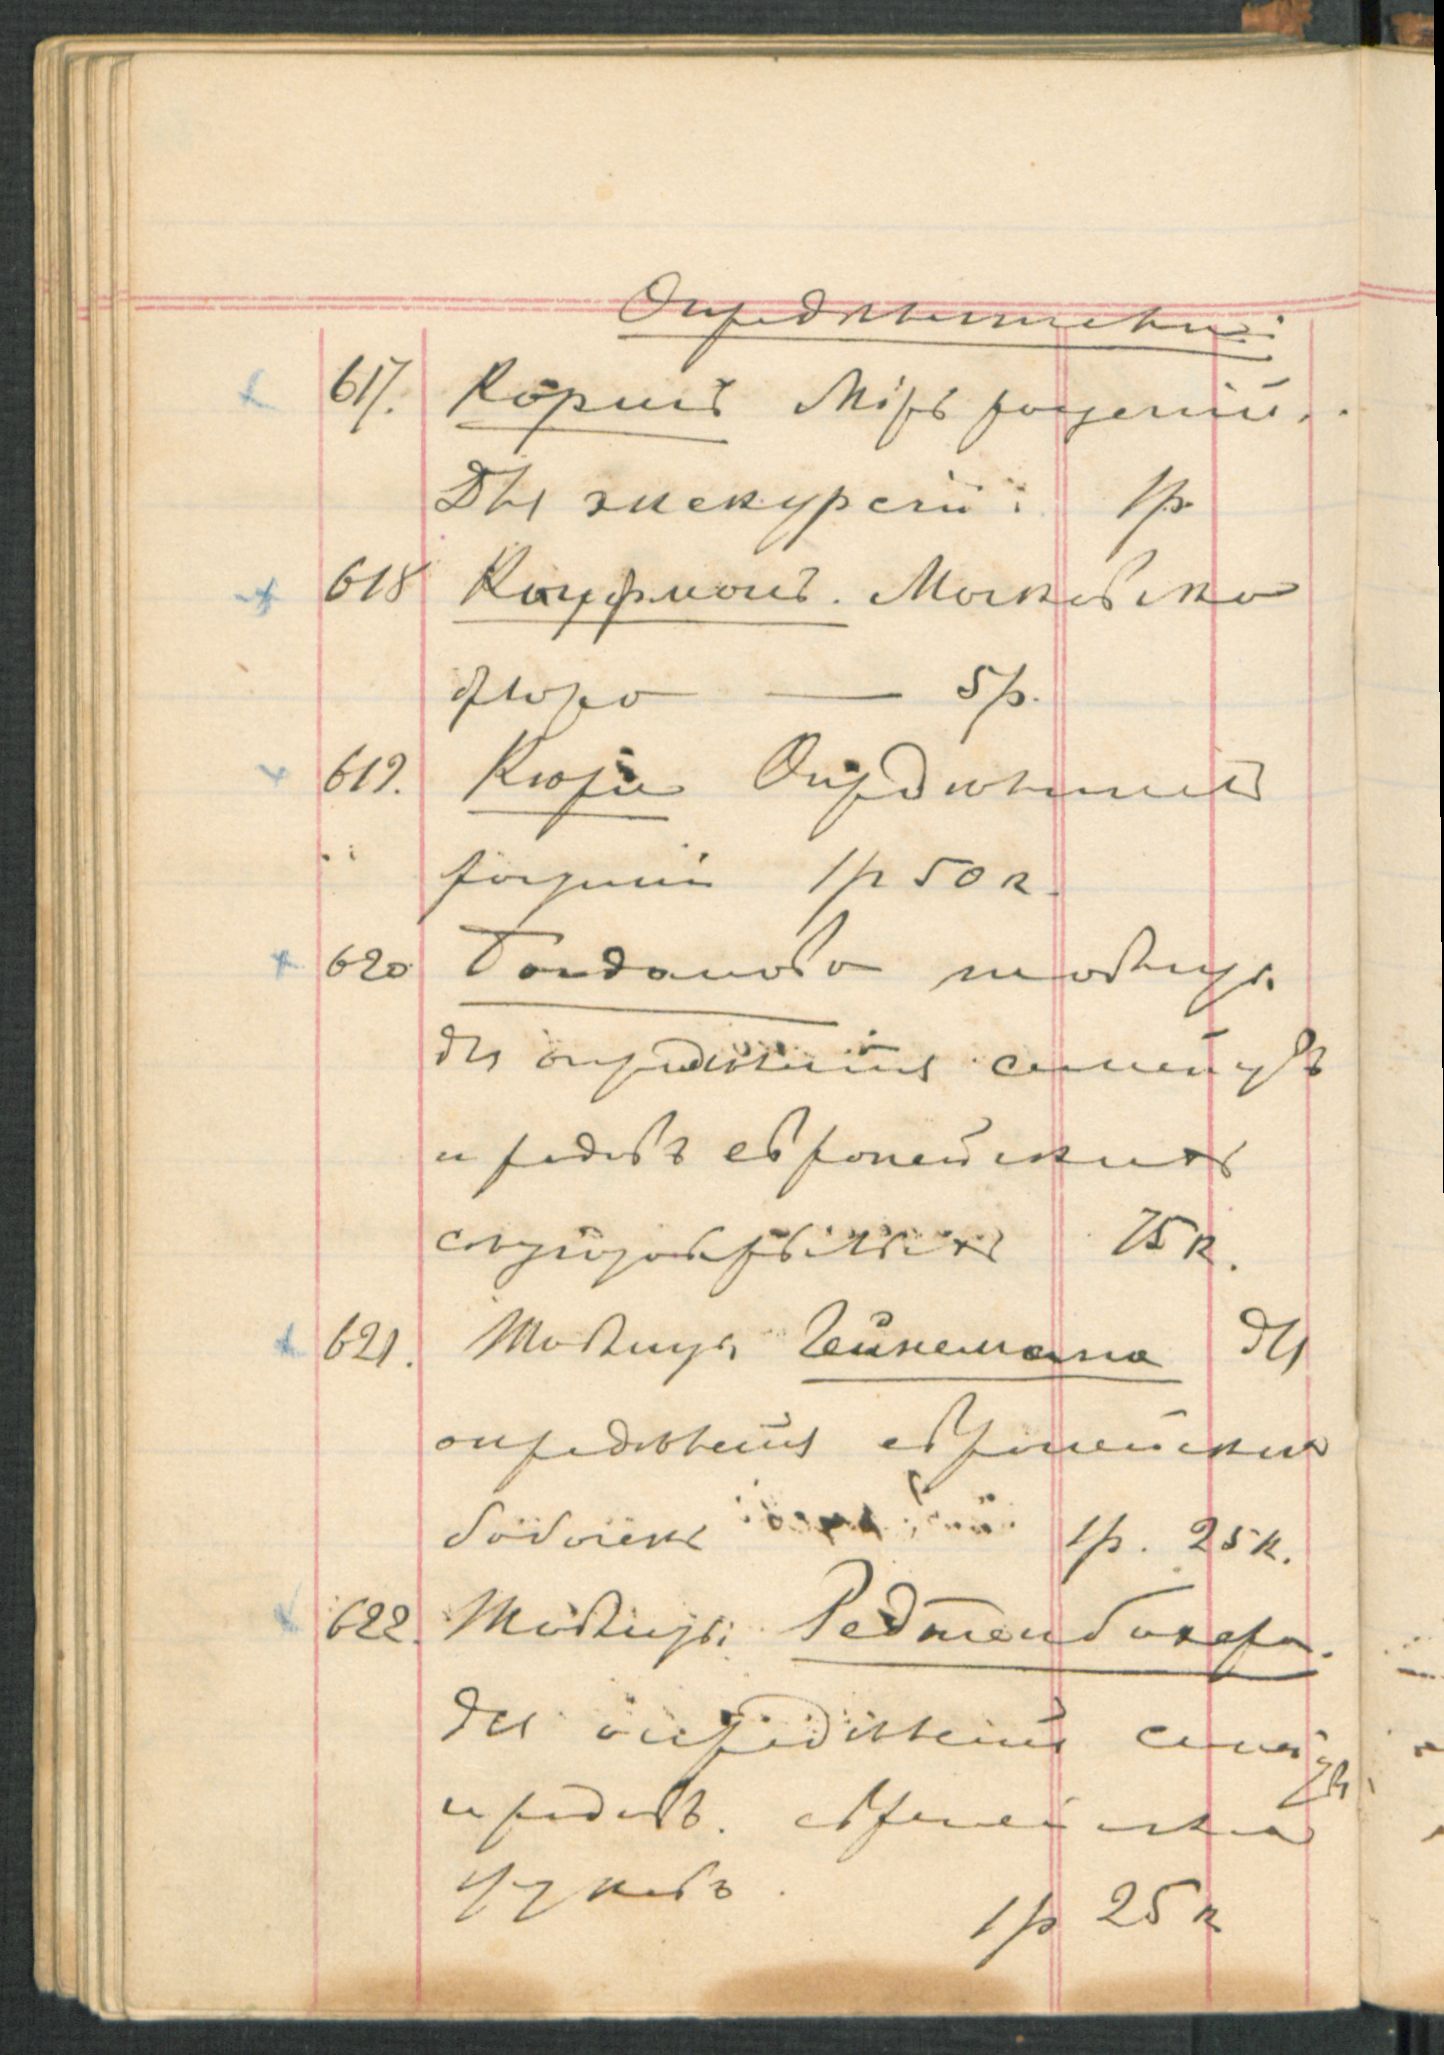 Опредѣлители:
617. Коршъ Міръ растеній.
Для экскурсій 1р.
618 Кауфманъ. Московская
флора — 5р.
619. Кюри Опредѣлитель
растеній 1р 50к.
620 Богданова таблицы
для опредѣленія семействъ
и родовъ европейскихъ
75к.
621. Таблицы Гейнемана для
опредѣленія европейскихъ
бабочекъ 1р. 25к.
622. Таблицы Редтенбахера.
для опредѣленія семействъ
и родовъ. европейскихъ
жуковъ.
1р 25к